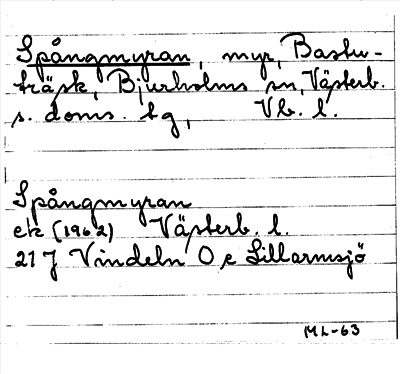 Spångmyran, myr, Bastu-
träsk, Bjurholms sn, Västerb.
s. doms. tg, Vb. l.
Spångmyran
ek (1962) Västerb. l.
21 J Vindeln O, e Lillarmsjö
ML-63